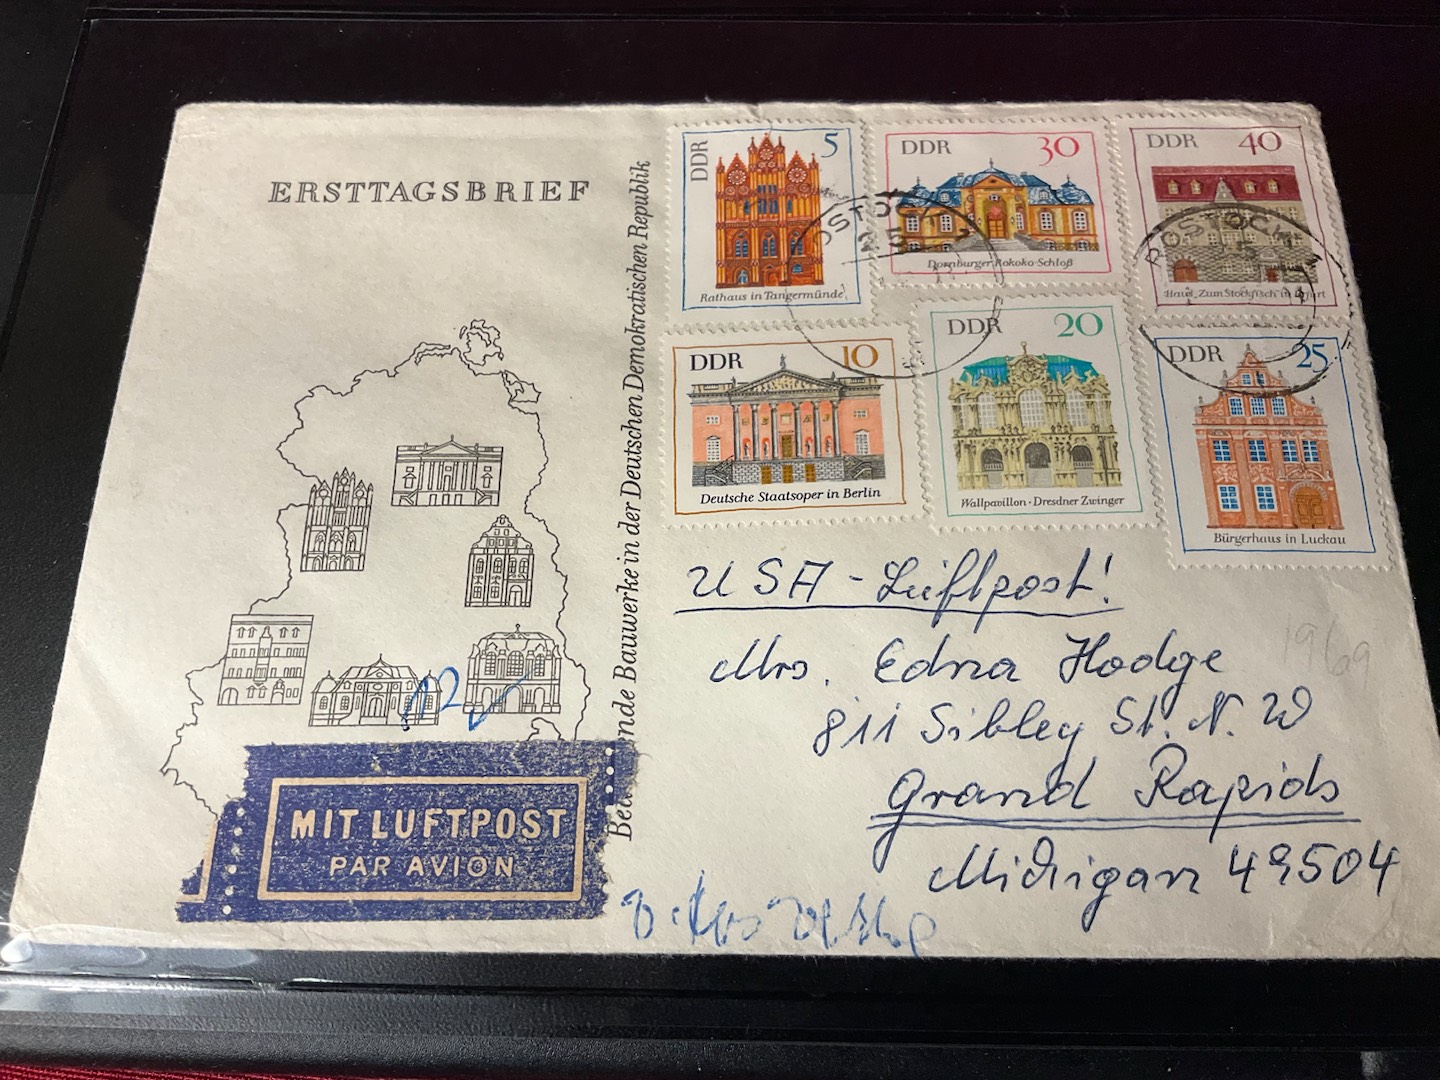 ERSTTAGSBRIEF
nde Bauwerke in der Deutschen Demokratischen Republik
DDR 5
Rathaus in Tangermünde
DDR 30
Dornburger Rokoko-Schloß
DDR 40
Haus „Zum Stockfisch" in Erfurt
DDR 10
Deutsche Staatsoper in Berlin
DDR 20
Wallpavillon · Dresdner Zwinger
DDR 25
Bürgerhaus in Luckau
OSTOCK
25
ROSTOCK
USA - Luftpost!
Mrs. Edna Hodge
811 Sibley St. N. W
Grand Rapids
Michigan 49504
1969
MIT LUFTPOST
PAR AVION